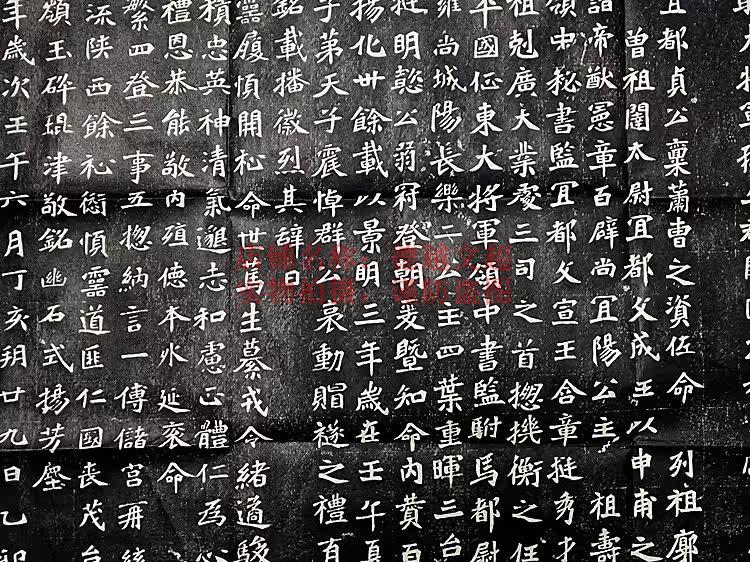 宜都貞公稟蕭曹之資佐命 列祖廓
曾祖闥太尉宜都文成王以申甫之
諦猷憲章百辟尚宜陽公主 祖壽
領中秘書監宜都文宣王含章挺秀才
祖剋廣大業處三司之首摠機衡之任
平國征東大將軍領中書監駙馬都尉
雍尚城陽長樂二公主四葉重暉三台
挺明懿公弱冠登朝爰暨知命內贊百
揚化卅餘載以景明三年歲在壬午夏
子弟天子震悼群公哀動賵禭之禮有
銘載播徽烈其辭曰
靈履順開祉命世篤生纂戎令緒適駿
積忠英神清氣邈志和慮正體仁為心
禮恩恭能敬內殖德本外延衮命
繁四登三事五摠納言一傅儲宮再統
流陝西餘祉愆順靈道匪仁國喪茂台
頌玉碎琨津敬銘幽石式揚芳塵
年歲次壬午六月丁亥朔廿九日乙卯
店铺名称：
实物拍摄，谨防盗图